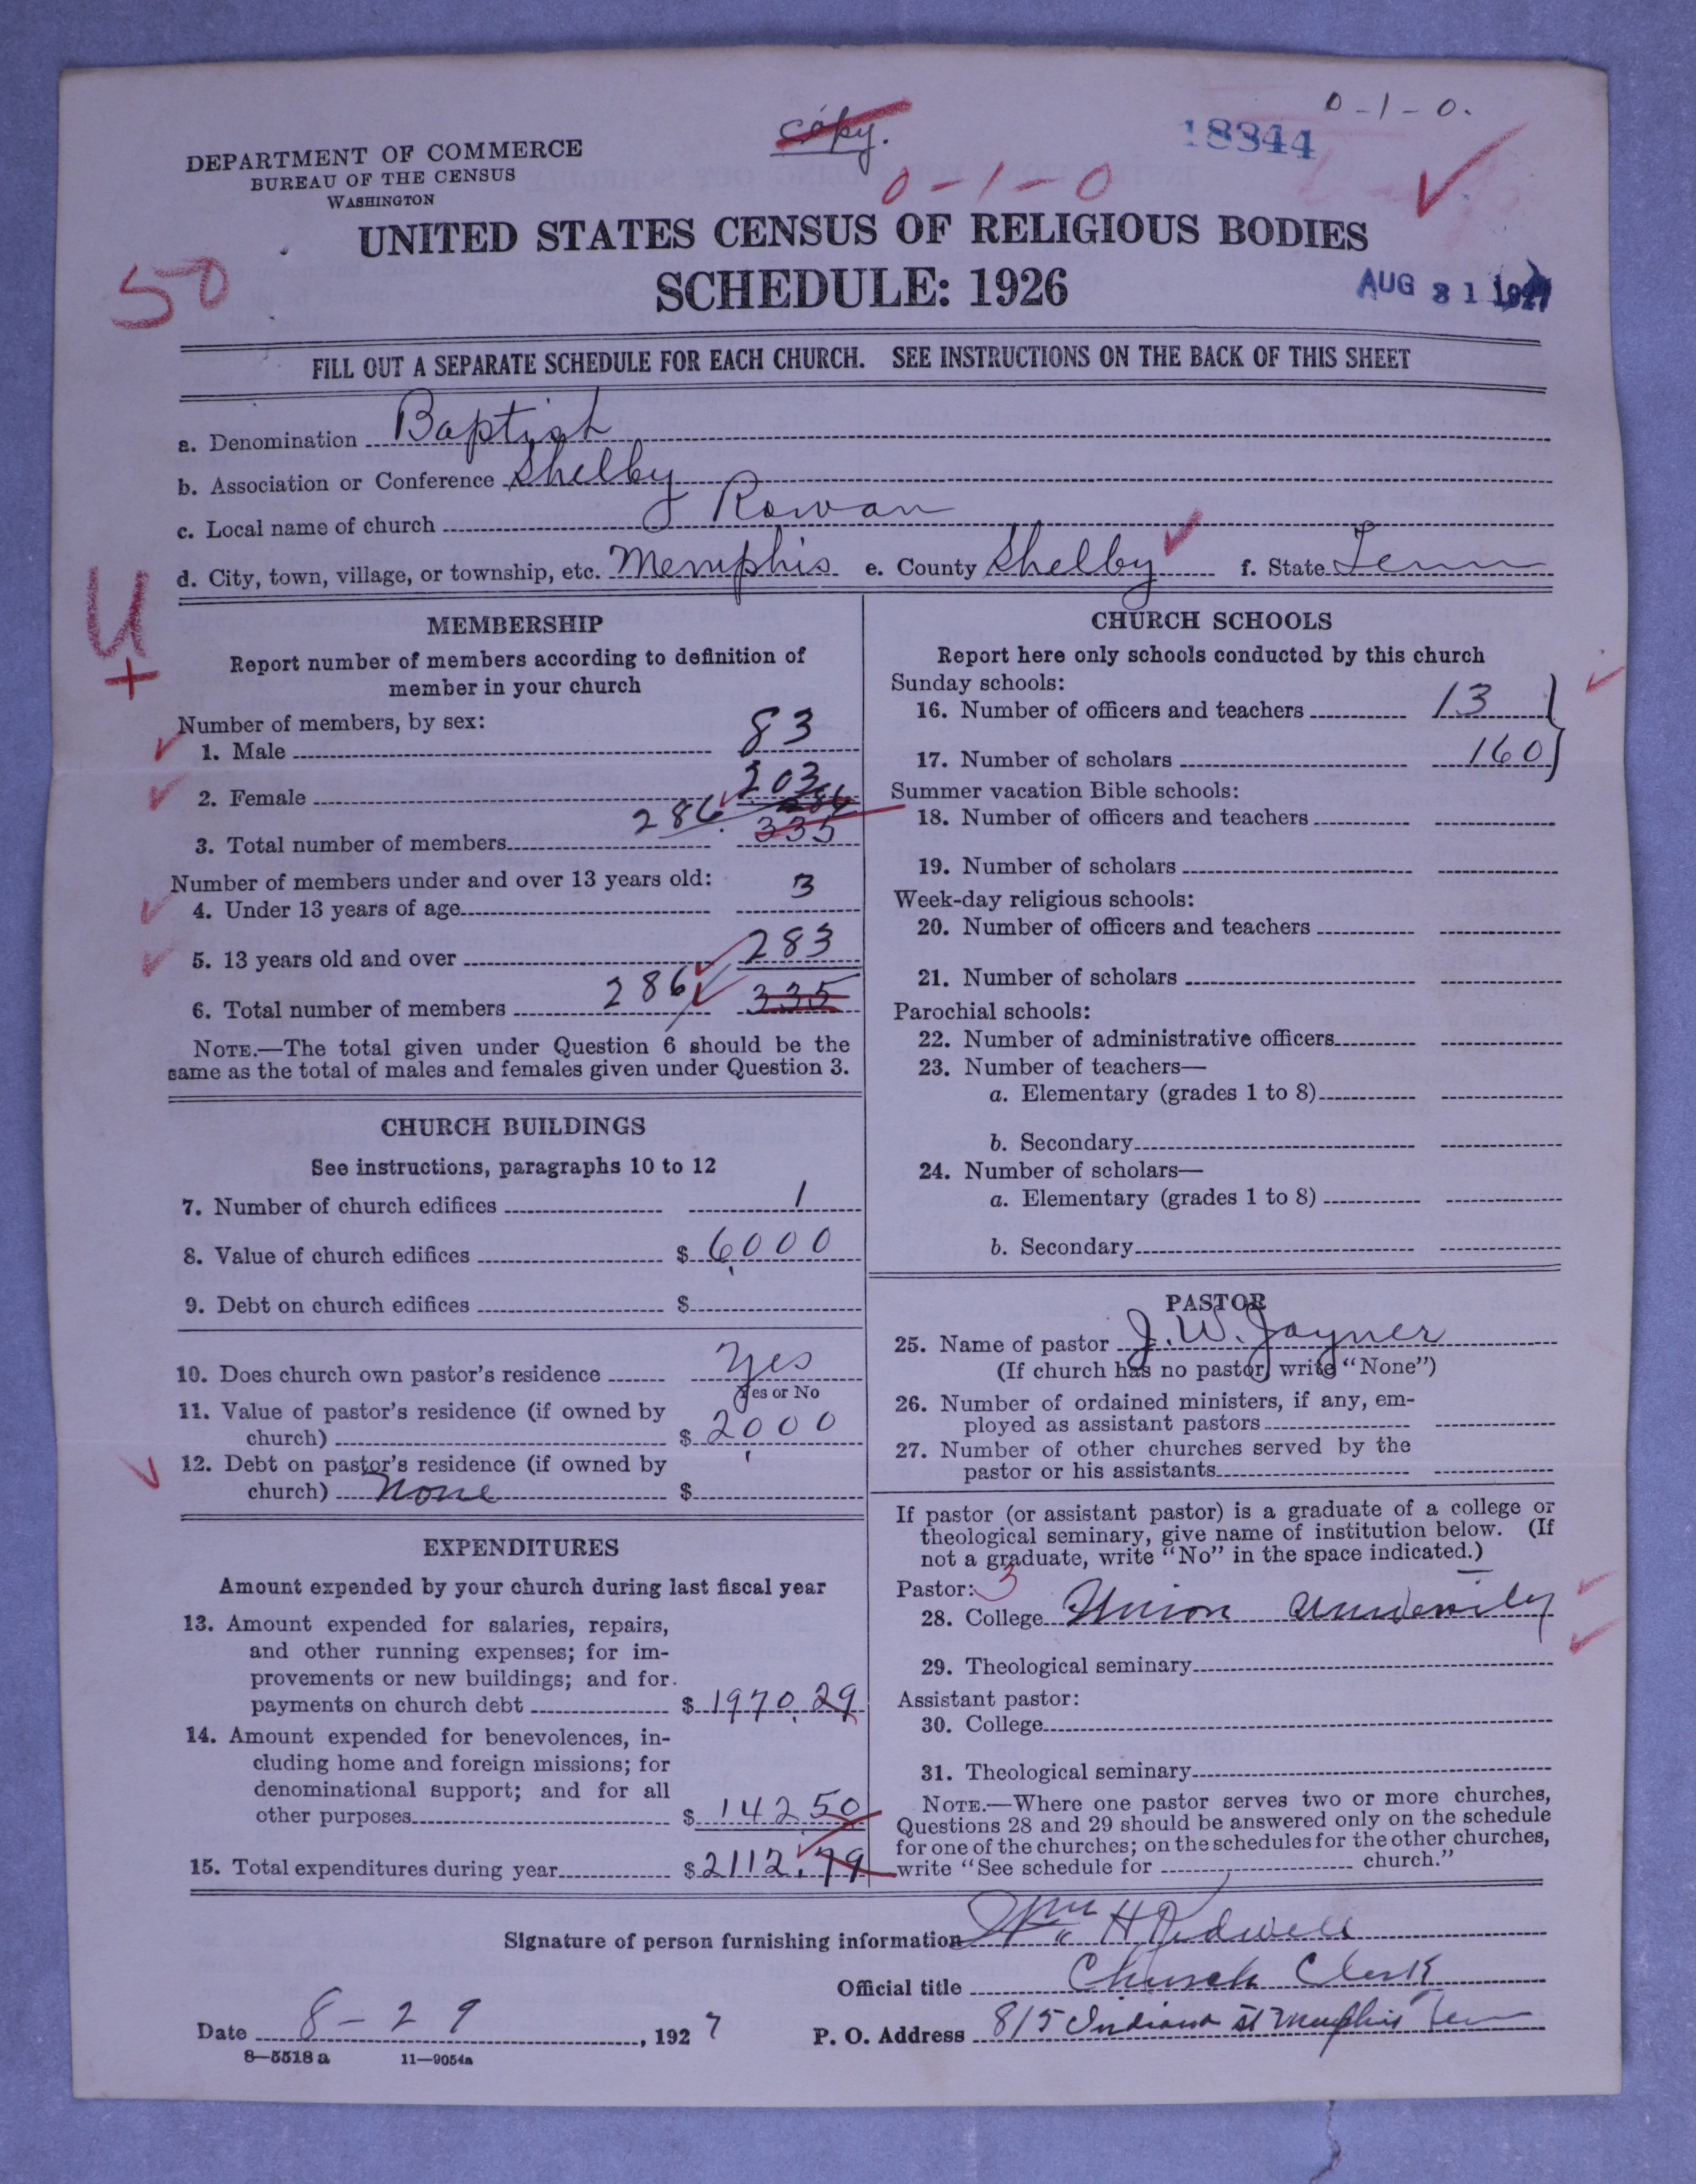 copy.
0-1-0.
18344
DEPARTMENT OF COMMERCE
BUREAU OF THE CENSUS
WASHINGTON
0-1-0
UNITED STATES CENSUS OF RELIGIOUS BODIES
SCHEDULE: 1926
50
AUG 31 1927
FILL OUT A SEPARATE SCHEDULE FOR EACH CHURCH. SEE INSTRUCTIONS ON THE BACK OF THIS SHEET
a. Denomination Baptist
b. Association or Conference Shelby
c. Local name of church Rowan
d. City, town, village, or township, etc. Memphis e. County Shelby f. State Tenn
U
+
MEMBERSHIP
Report number of members according to definition of
member in your church
Number of members, by sex:
1. Male 83
2. Female 203
286 335
3. Total number of members
Number of members under and over 13 years old:
4. Under 13 years of age 3
5. 13 years old and over 283
6. Total number of members 286 335
NOTE.—The total given under Question 6 should be the
same as the total of males and females given under Question 3.
CHURCH BUILDINGS
See instructions, paragraphs 10 to 12
7. Number of church edifices 1
8. Value of church edifices $ 6000
9. Debt on church edifices $
10. Does church own pastor's residence Yes
Yes or No
11. Value of pastor's residence (if owned by
church) $ 2000
12. Debt on pastor's residence (if owned by
church) None $
EXPENDITURES
Amount expended by your church during last fiscal year
13. Amount expended for salaries, repairs,
and other running expenses; for im-
provements or new buildings; and for
payments on church debt $ 1970.29
14. Amount expended for benevolences, in-
cluding home and foreign missions; for
denominational support; and for all
other purposes $ 142 50
15. Total expenditures during year $ 2112.79
CHURCH SCHOOLS
Report here only schools conducted by this church
Sunday schools:
16. Number of officers and teachers 13
17. Number of scholars 160
Summer vacation Bible schools:
18. Number of officers and teachers
19. Number of scholars
Week-day religious schools:
20. Number of officers and teachers
21. Number of scholars
Parochial schools:
22. Number of administrative officers
23. Number of teachers—
a. Elementary (grades 1 to 8)
b. Secondary
24. Number of scholars—
a. Elementary (grades 1 to 8)
b. Secondary
PASTOR
25. Name of pastor J. W. Joyner
(If church has no pastor, write "None")
26. Number of ordained ministers, if any, em-
ployed as assistant pastors
27. Number of other churches served by the
pastor or his assistants
If pastor (or assistant pastor) is a graduate of a college or
theological seminary, give name of institution below. (If
not a graduate, write "No" in the space indicated.)
Pastor: 3
28. College Union University
29. Theological seminary
Assistant pastor:
30. College
31. Theological seminary
NOTE.—Where one pastor serves two or more churches,
Questions 28 and 29 should be answered only on the schedule
for one of the churches; on the schedules for the other churches,
write "See schedule for church."
Signature of person furnishing information Wm H
Official title Church Clerk
Date 8-29, 1927 P. O. Address 815 Indiana St Memphis Ten
8—5518 a 11—9054a